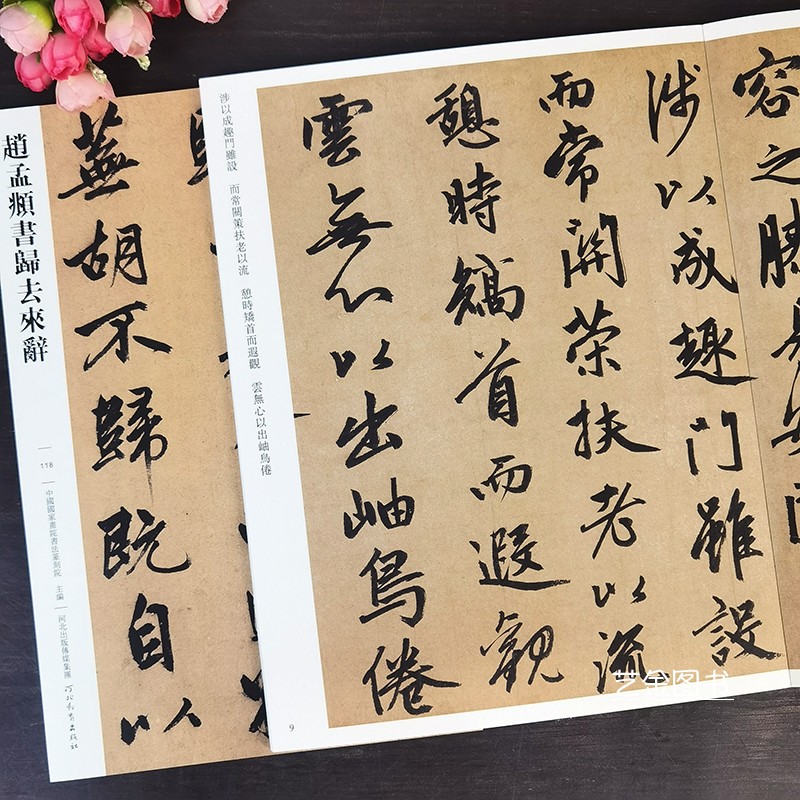 趙孟頫書歸去來辭
118
中國國家畫院書法篆刻院 主編
河北出版傳媒集團
河北教育出版社
蕪胡不歸既自以
容之膝易安園
涉以成趣門雖設
而常關策扶老以流
憩時矯首而遐觀
雲無心以出岫鳥倦
涉以成趣門雖設 而常關策扶老以流 憩時矯首而遐觀 雲無心以出岫鳥倦
9
艺金图书